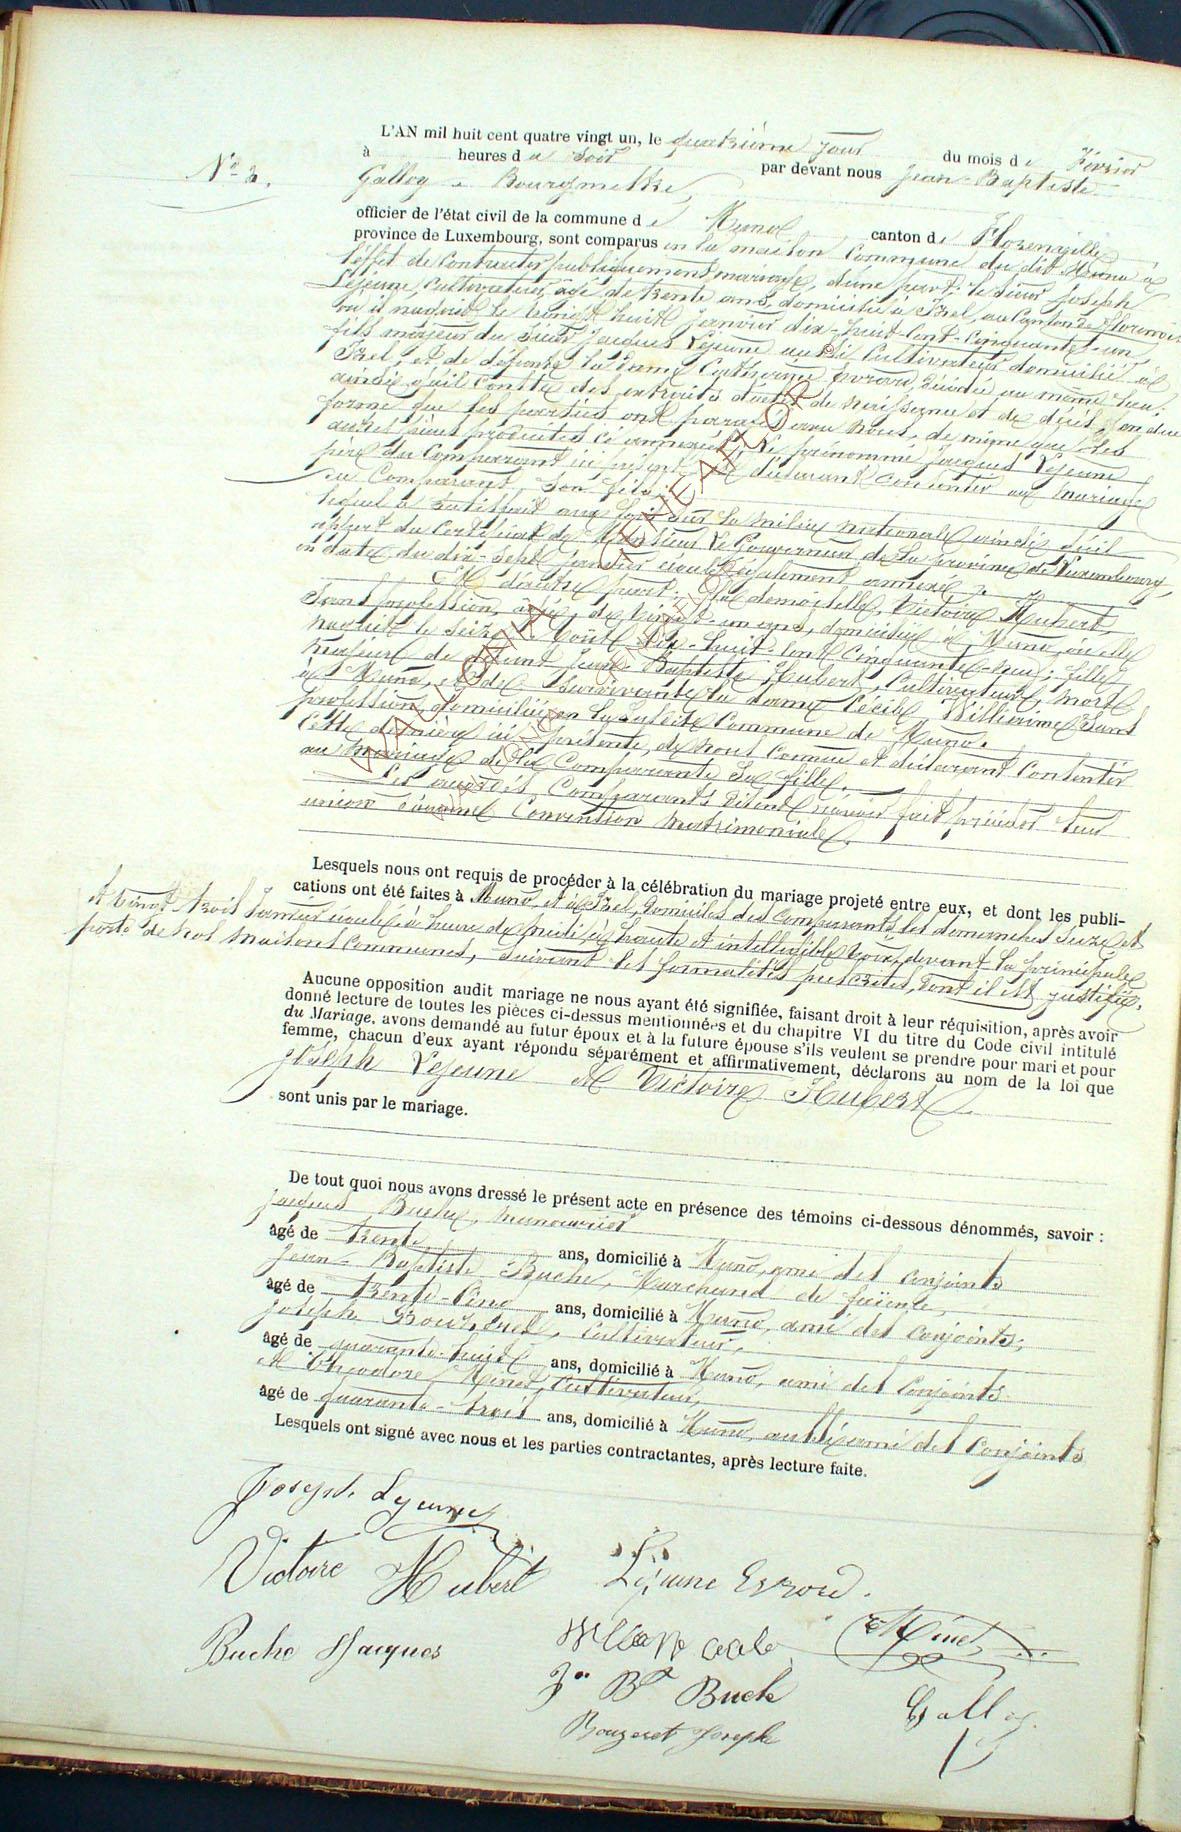 N° 2.
L'AN mil huit cent quatre vingt un, le quatrième jour du mois de Février
à heures du soir par devant nous Jean-Baptiste
Galloy - Bourgmestre,
officier de l'état civil de la commune de Muno canton de Florenville
province de Luxembourg, sont comparus en la maison Commune du dit Muno à
l'effet de contracter publiquement mariage, d'une part: le sieur Joseph
Lejeune, Cultivateur, âgé de trente ans, domicilié à Izel, au Canton de Florenville
où il naquit le vingt huit Janvier dix-huit-cent-cinquante-un,
fils majeur du sieur Jacques Lejeune aussi Cultivateur domicilié à
Izel, et de défunte la dame Catherine Evrard, décédée au même lieu;
ainsi qu'il conste des extraits d'actes de naissance et de décès, en due
forme que les parties ont paraphés avec nous, de même que les
autres pièces produites ci annexées. Le prénommé Jacques Lejeune
père du comparant ici présent et déclarant consentir au mariage
du Comparant, son fils.
lequel a satisfait aux lois sur la milice nationale ainsi qu'il
appert du Certificat de Monsieur Le Gouverneur de la province de Luxembourg,
en date du dix-sept janvier écoulé également annexé.
Et d'autre part: la demoiselle, Victoire Hubert,
Sans profession, âgée de vingt-un ans, domiciliée à Muno, où elle
naquit le seize Août dix-huit-cent cinquante-neuf; fille
majeure de défunt Jean Baptiste Hubert, Cultivateur, mort
à Muno, et de survivante la dame Cécile Willaume Sans
profession, domiciliée en la susdite Commune de Muno.
Cette dernière ici présente, de nous connue et déclarant Consentir
au mariage de la Comparante Sa fille.
Les susdits Comparants disent n'avoir fait précéder leur
union d'aucune Convention matrimoniale.
Lesquels nous ont requis de procéder à la célébration du mariage projeté entre eux, et dont les publi-
cations ont été faites à Muno, et à Izel, Domiciles des Comparants, les dimanches seize et
Et vingt trois Janvier écoulé, à heure de midi, à haute et intelligible voix, devant la principale
porte de nos maisons Communes, suivant les formalités prescrites, dont il est justifié.
Aucune opposition audit mariage ne nous ayant été signifiée, faisant droit à leur réquisition, après avoir
donné lecture de toutes les pièces ci-dessus mentionnées et du chapitre VI du titre du Code civil intitulé
du Mariage, avons demandé au futur époux et à la future épouse s'ils veulent se prendre pour mari et pour
femme, chacun d'eux ayant répondu séparément et affirmativement, déclarons au nom de la loi que
Joseph Lejeune Et Victoire Hubert
sont unis par le mariage.
De tout quoi nous avons dressé le présent acte en présence des témoins ci-dessous dénommés, savoir :
Jacques Buche, manouvrier
âgé de trente ans, domicilié à Muno, ami des conjoints
Jean-Baptiste Buche, Marchand de faïence,
âgé de trente-cinq ans, domicilié à Muno, ami des conjoints;
Joseph Bouzeret, Cultivateur,
âgé de quarante-huit ans, domicilié à Muno, ami des conjoints
Et Théodore Minet, Cultivateur,
âgé de quarante-trois ans, domicilié à Muno, aussi ami des conjoints
Lesquels ont signé avec nous et les parties contractantes, après lecture faite.
Joseph Lejeune
Victoire Hubert
Lejeune Evrard.
Buche Jacques
Minet
Jn Bte Buche
Bouzeret Joseph
Galloy
WALLONIA GENEAFLOR